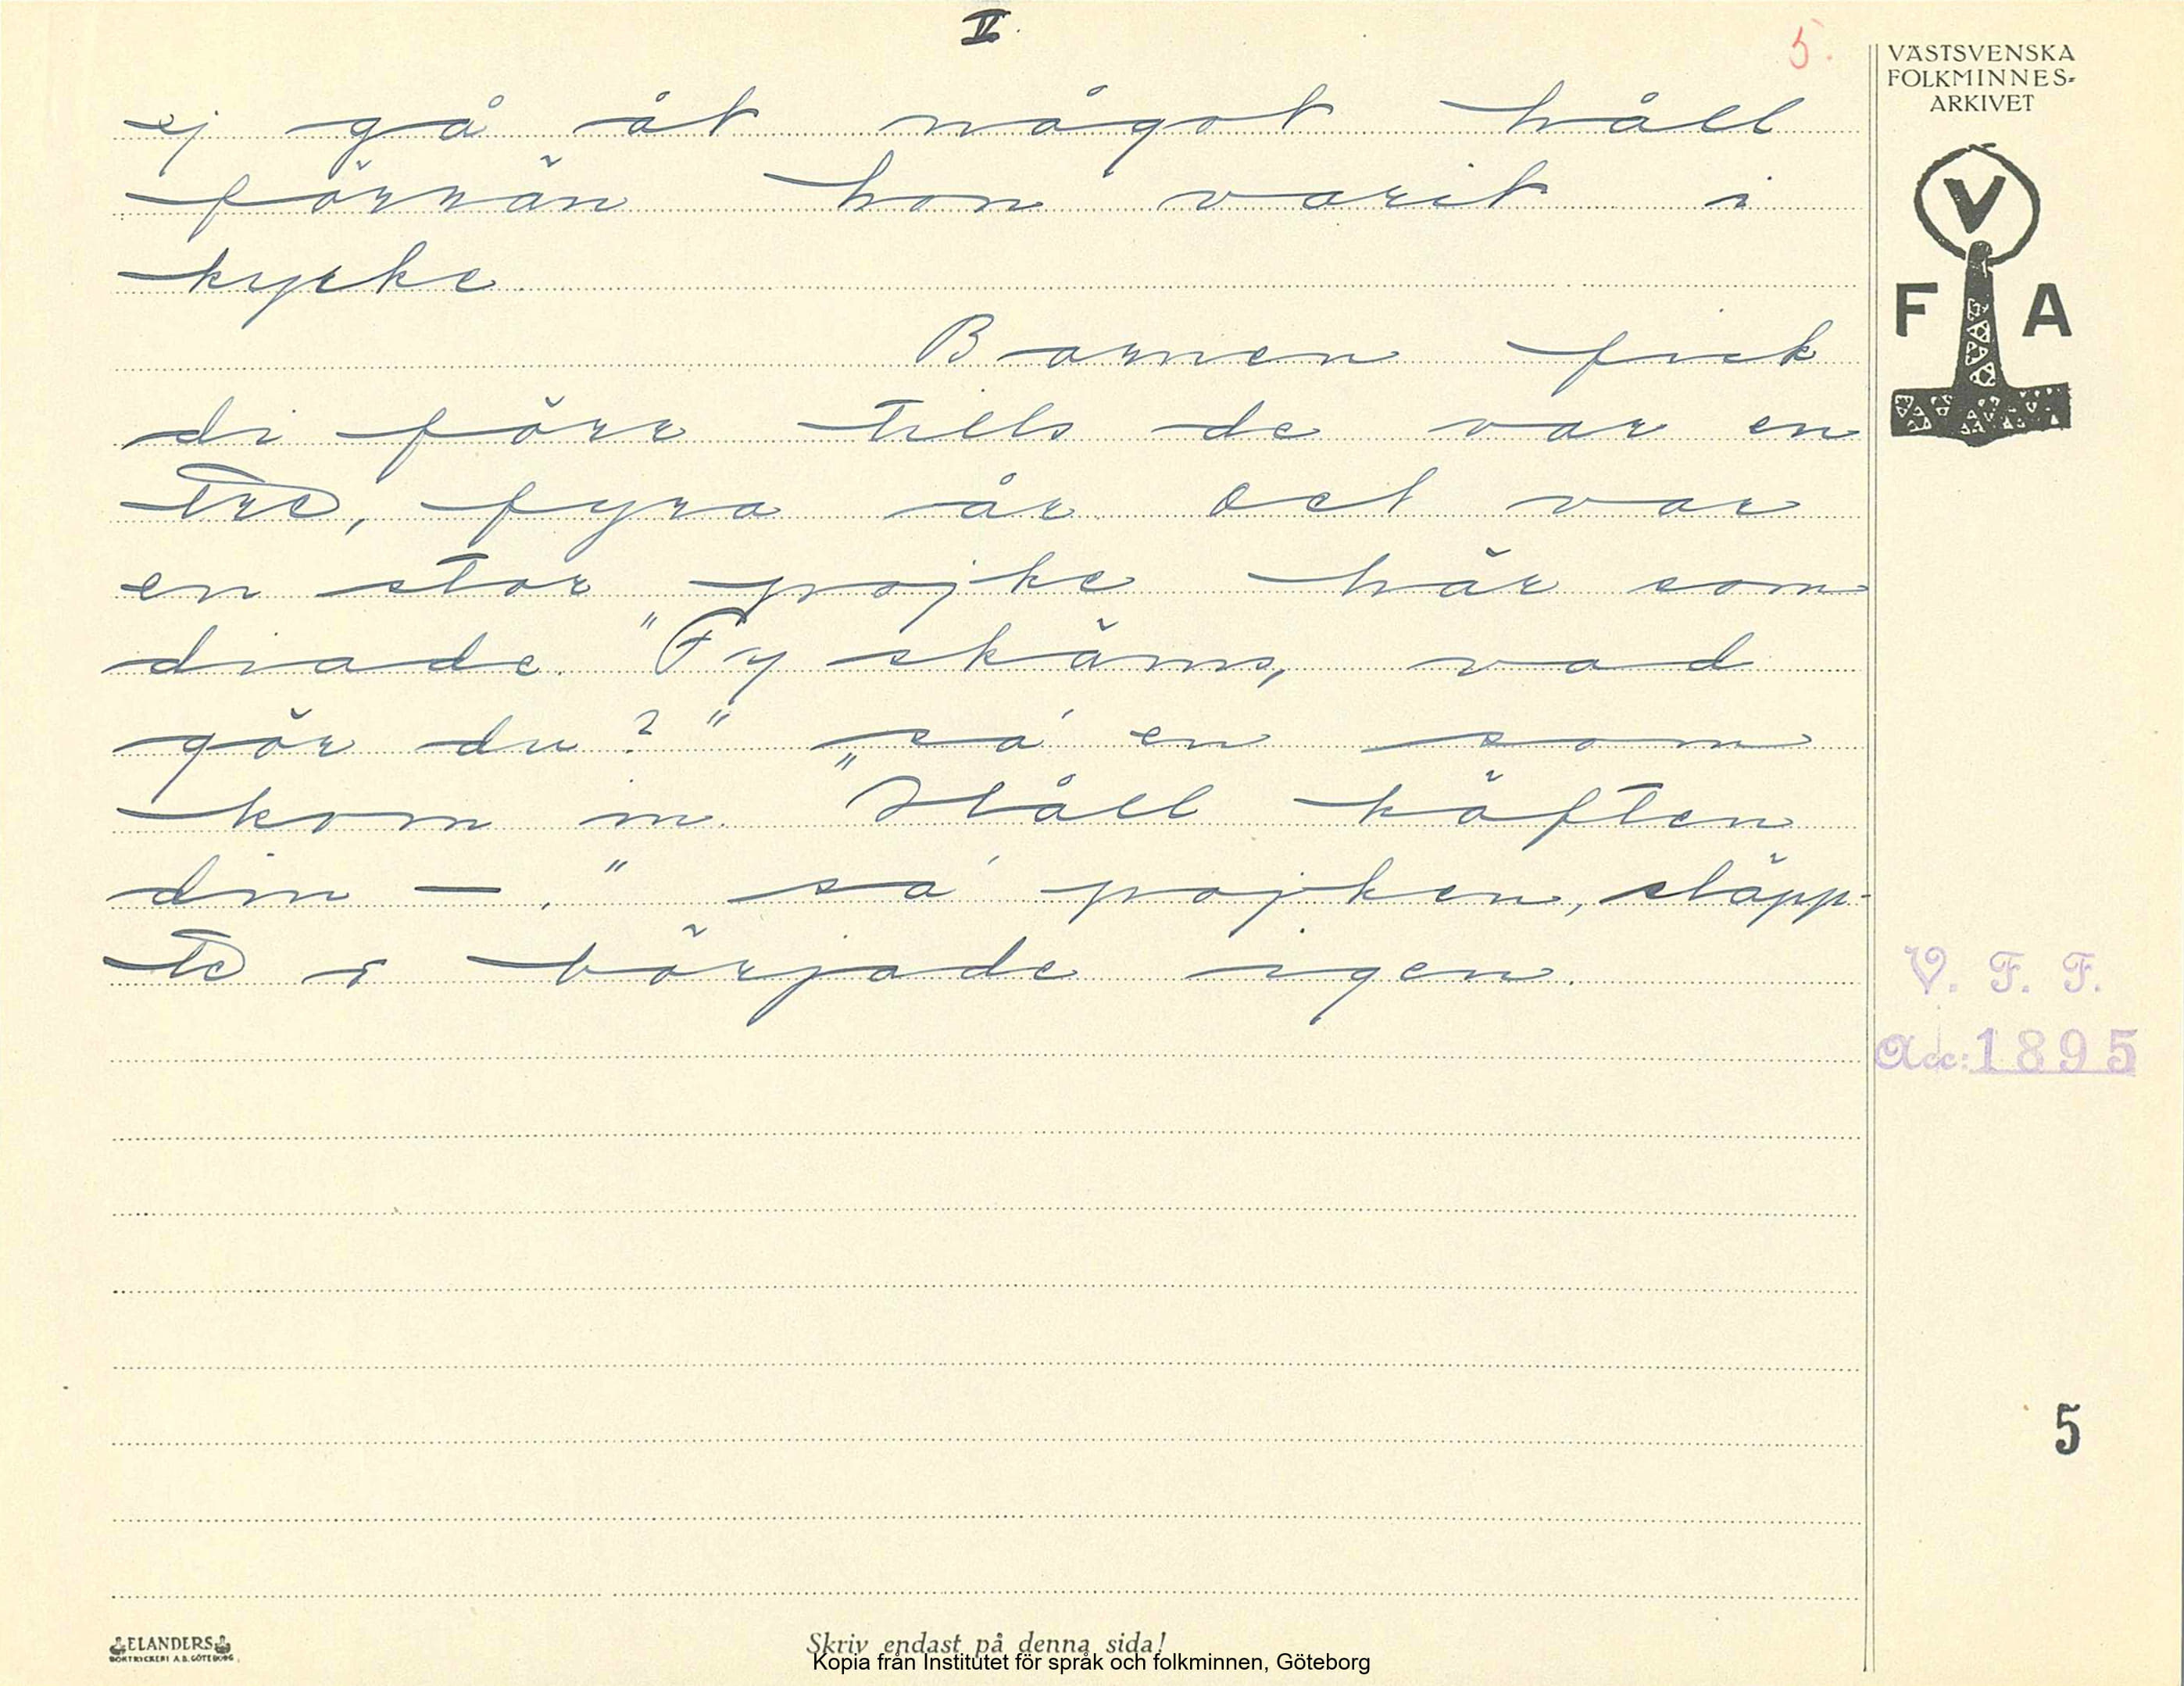 V.
5.
VÄSTSVENSKA
FOLKMINNES-
ARKIVET
V
F A
ej gå åt något håll
förrän hon varit i
kyrke.
Barnen fick
di förr tills de var en
tre, fyra år. Det var
en stor pojke här som
diade. "Fy skäms, vad
gör du?" sa' en som
kom in. "Håll käften
din —." sa' pojken, släpp-
te o började igen.
V. F. F.
Acc: 1895
5
ELANDERS
BOKTRYCKERI A.B. GÖTEBORG
Skriv endast på denna sida!
Kopia från Institutet för språk och folkminnen, Göteborg